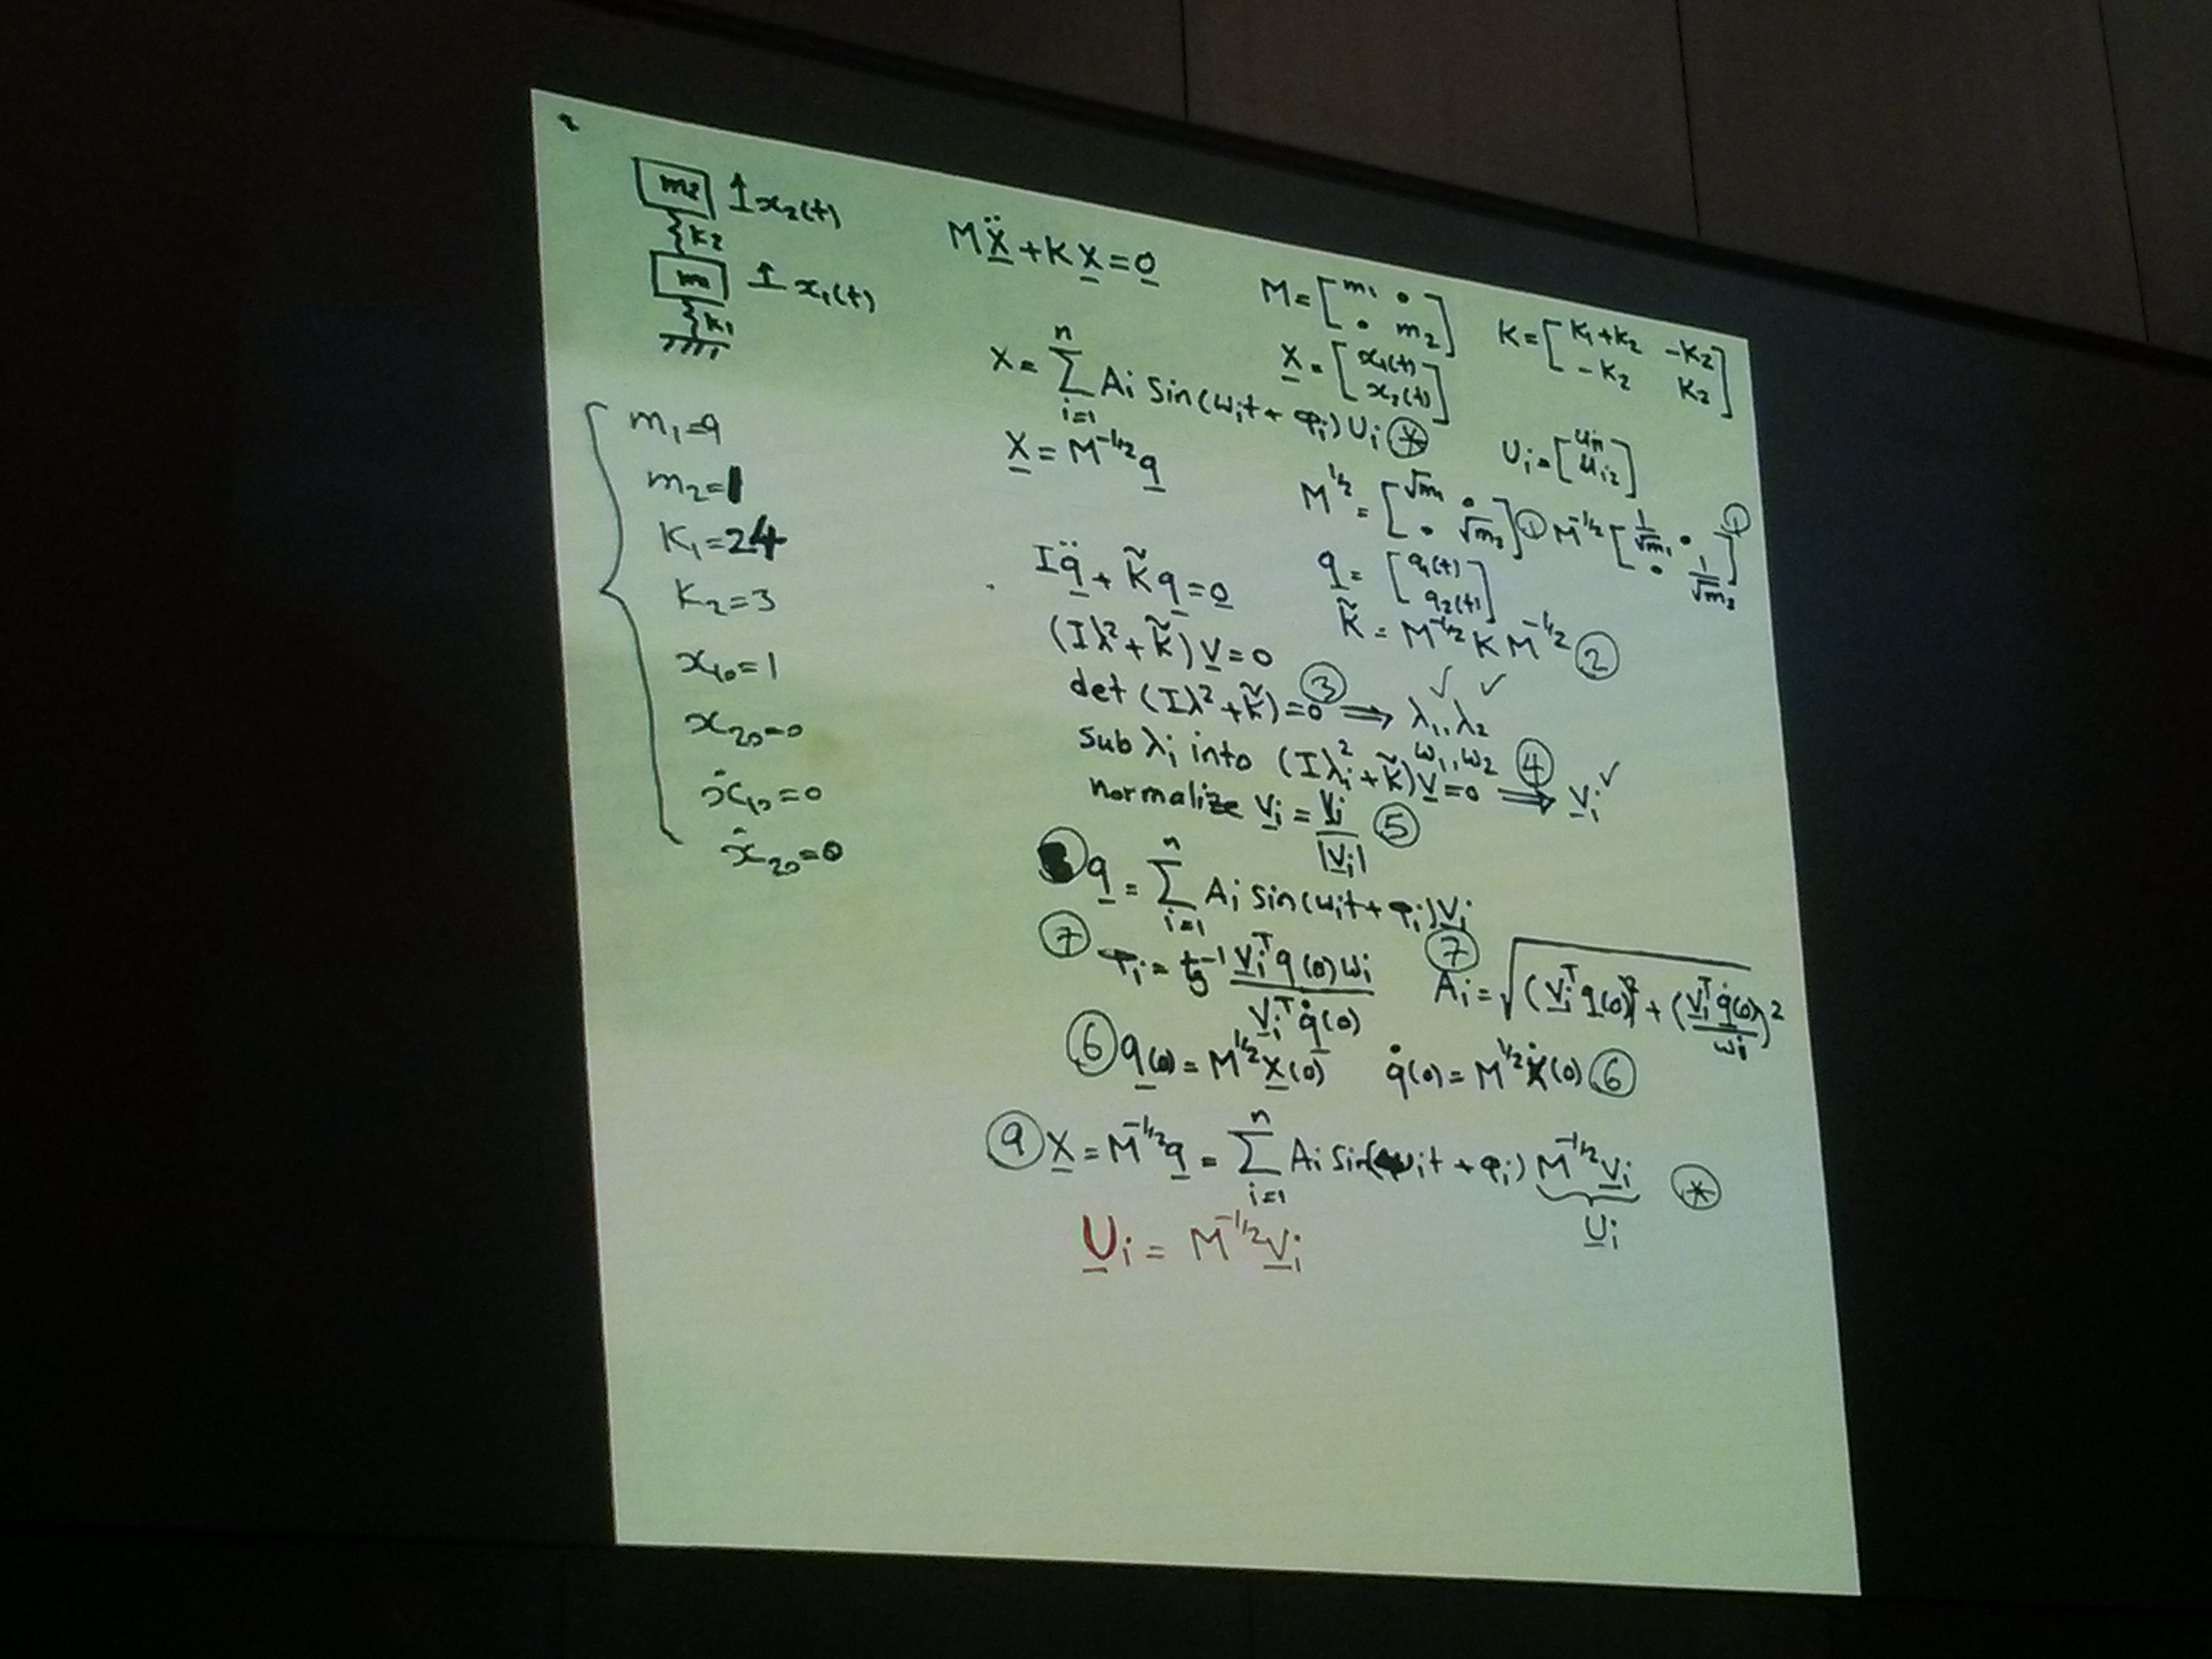 m2 ↑x2(t)
k2
m ↑x1(t)
k1
m1=9
m2=1
K1=24
K2=3
x10=1
x20=0
ẋ10=0
ẋ20=0
MẌ+KX=0
M=[m1 0; 0 m2] K=[K1+K2 -K2; -K2 K2]
X=∑_{i=1}^{n} Ai Sin(ωit+φi)Ui (*) X=[x1(t); x2(t)]
Ui=[ui1; ui2]
X=M^{-1/2}q
M^{1/2}=[√m1 0; 0 √m2] ① M^{-1/2}[1/√m1 0; 0 1/√m2] ①
Iq̈+K̃q=0 q=[q1(t); q2(t)]
(Iλ²+K̃)V=0 K̃=M^{-1/2}KM^{-1/2} ②
det(Iλ²+K̃)=0 ③ ⇒ λ1,λ2 ✓ ✓
ω1,ω2
sub λi into (Iλi²+K̃)V=0 ④ ⇒ Vi ✓
normalize Vi=Vi/|Vi| ⑤
⑧ q=∑_{i=1}^{n} Ai Sin(ωit+φi)Vi
⑦ φi=tg^{-1} Vi^T q(0)ωi / Vi^T q̇(0) ⑦ Ai=√((Vi^T q(0))²+(Vi^T q̇(0)/ωi)²)
⑥ q(0)=M^{1/2}X(0) q̇(0)=M^{1/2}Ẋ(0) ⑥
⑨ X=M^{-1/2}q=∑_{i=1}^{n} Ai Sin(ωit+φi) M^{-1/2}Vi (*)
Ui
Ui=M^{-1/2}Vi